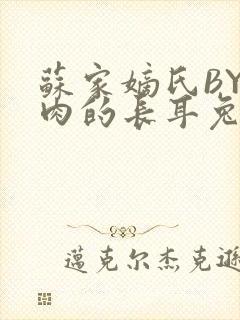 蘇家嫡氏BY
肉的長耳兔
邁克尔杰克遜